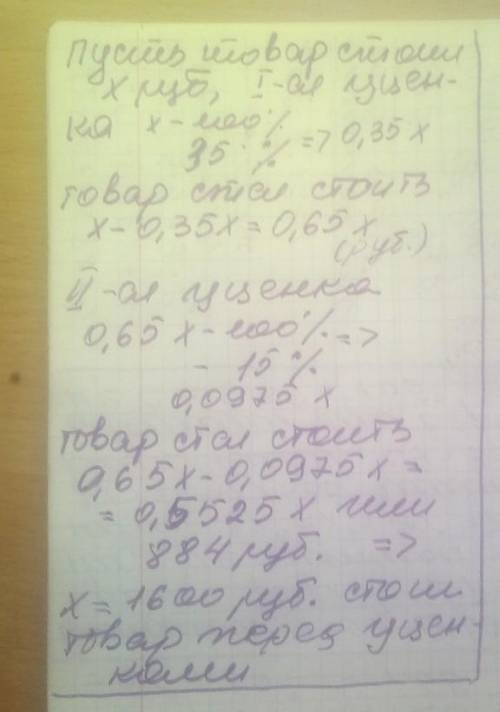 Пусть товар стоил
х руб, I-ая уцен-
ка х - 100%
35% => 0,35х
товар стал стоить
х - 0,35х = 0,65х
(руб.)
II-ая уценка
0,65х - 100% =>
- 15%
0,0975х
товар стал стоить
0,65х - 0,0975х =
= 0,5525х или
884 руб. =>
х = 1600 руб. стоил
товар перед уцен-
ками